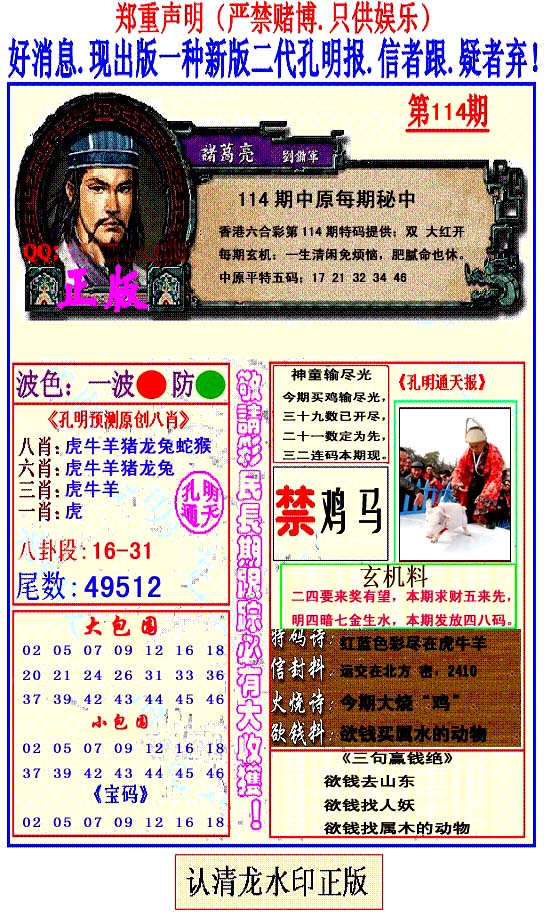 郑重声明（严禁赌博.只供娱乐）
好消息.现出版一种新版二代孔明报.信者跟.疑者弃!
第114期
諸葛亮
114 期中原每期秘中
香港六合彩第 114 期特码提供：双 大红开
每期玄机：一生清闲免烦恼，肥腻命也休。
中原平特五码：17 21 32 34 46
QQ:
正版
波色：一波 防
《孔明预测原创八肖》
八肖:虎牛羊猪龙兔蛇猴
六肖:虎牛羊猪龙兔
三肖:虎牛羊
一肖:虎
孔明
通天
八卦段:16-31
尾数:49512
大包围
02 05 07 09 12 16 18
20 21 24 26 31 33 36
37 39 42 43 44 45 46
小包围
02 05 07 09 12 16 18
37 39 42 43 44 45 46
《宝码》
02 05 07 09 12 16 18
敬請彩民長期跟踪必有大收獲！
神童输尽光
今期买鸡输尽光，
三十九数已开尽，
二十一数定为先，
三二连码本期现。
《孔明通天报》
禁鸡马
玄机料
二四要来奖有望，本期求财五来先，
明四暗七金生水，本期发放四八码。
特码诗：红蓝色彩尽在虎牛羊
信封料：运交在北方 密，2410
火烧诗：今期大烧“鸡”
欲钱料：欲钱买属水的动物
《三句赢钱绝》
欲钱去山东
欲钱找人妖
欲钱找属木的动物
认清龙水印正版